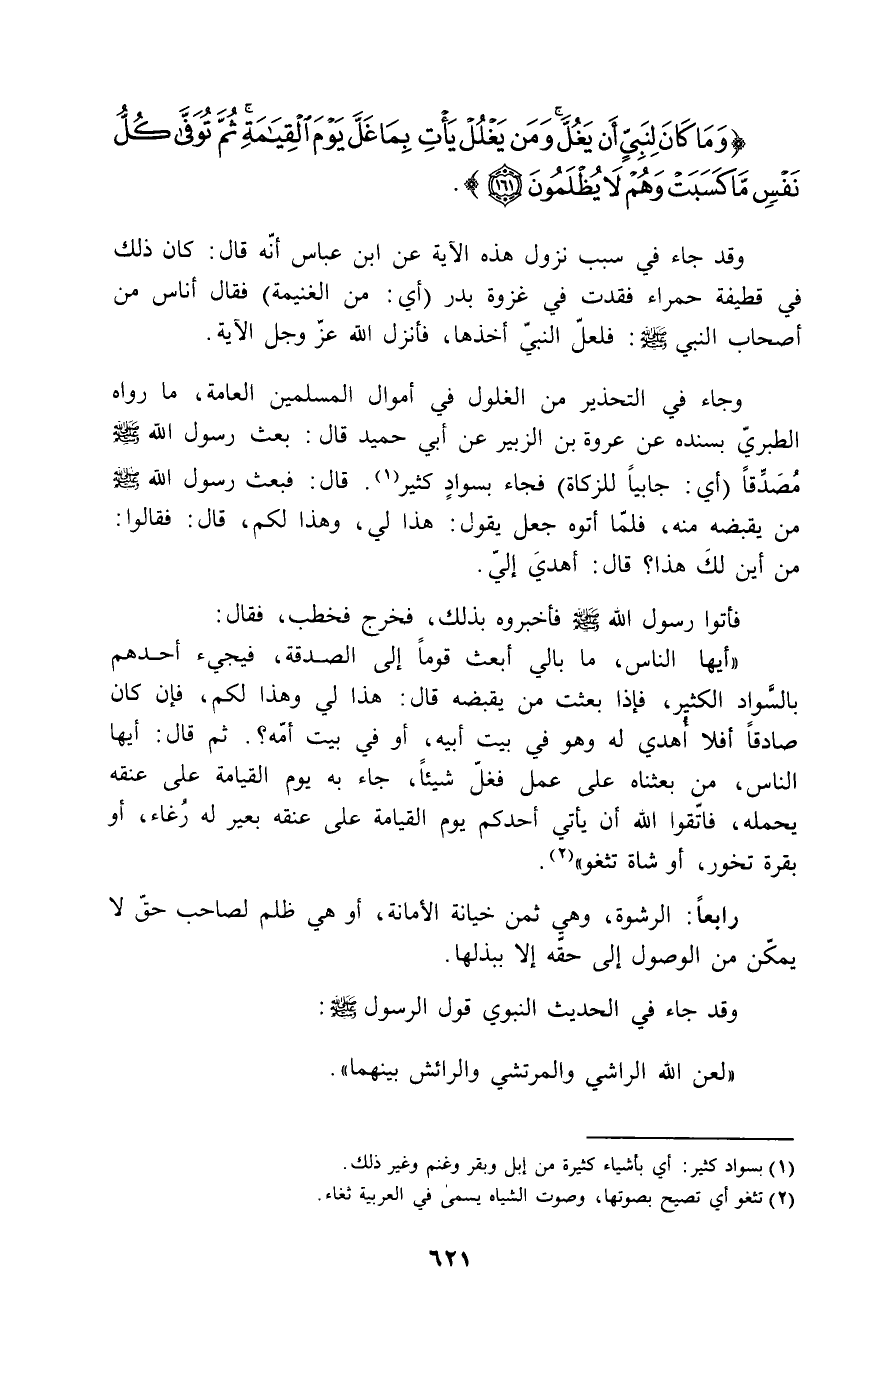 ﴿وَمَا كَانَ لِنَبِيٍّ أَن يَغُلَّ ۚ وَمَن يَغْلُلْ يَأْتِ بِمَا غَلَّ يَوْمَ الْقِيَامَةِ ۚ ثُمَّ تُوَفَّىٰ كُلُّ
نَفْسٍ مَّا كَسَبَتْ وَهُمْ لَا يُظْلَمُونَ ١٦١﴾.
وقد جاء في سبب نزول هذه الآية عن ابن عباس أنّه قال: كان ذلك
في قطيفة حمراء فقدت في غزوة بدر (أي: من الغنيمة) فقال أناس من
أصحاب النبي ﷺ: فلعلّ النبيّ أخذها، فأنزل الله عزّ وجل الآية.
وجاء في التحذير من الغلول في أموال المسلمين العامة، ما رواه
الطبريّ بسنده عن عروة بن الزبير عن أبي حميد قال: بعث رسول الله ﷺ
مُصَدِّقاً (أي: جابياً للزكاة) فجاء بسوادٍ كثير(١). قال: فبعث رسول الله ﷺ
من يقبضه منه، فلمّا أتوه جعل يقول: هذا لي، وهذا لكم، قال: فقالوا:
من أين لكَ هذا؟ قال: أهديَ إليّ.
فأتوا رسول الله ﷺ فأخبروه بذلك، فخرج فخطب، فقال:
«أيها الناس، ما بالي أبعث قوماً إلى الصدقة، فيجيء أحدهم
بالسَّواد الكثير، فإذا بعثت من يقبضه قال: هذا لي وهذا لكم، فإن كان
صادقاً أفلا أُهدي له وهو في بيت أبيه، أو في بيت أمّه؟. ثم قال: أيها
الناس، من بعثناه على عمل فغلّ شيئاً، جاء به يوم القيامة على عنقه
يحمله، فاتّقوا الله أن يأتي أحدكم يوم القيامة على عنقه بعير له رُغاء، أو
بقرة تخور، أو شاة تثغو»(٢).
رابعاً: الرشوة، وهي ثمن خيانة الأمانة، أو هي ظلم لصاحب حقّ لا
يمكّن من الوصول إلى حقّه إلا ببذلها.
وقد جاء في الحديث النبوي قول الرسول ﷺ:
«لعن الله الراشي والمرتشي والرائش بينهما».
(١) بسواد كثير: أي بأشياء كثيرة من إبل وبقر وغنم وغير ذلك.
(٢) تثغو أي تصيح بصوتها، وصوت الشياه يسمىٰ في العربية ثغاء.
٦٢١